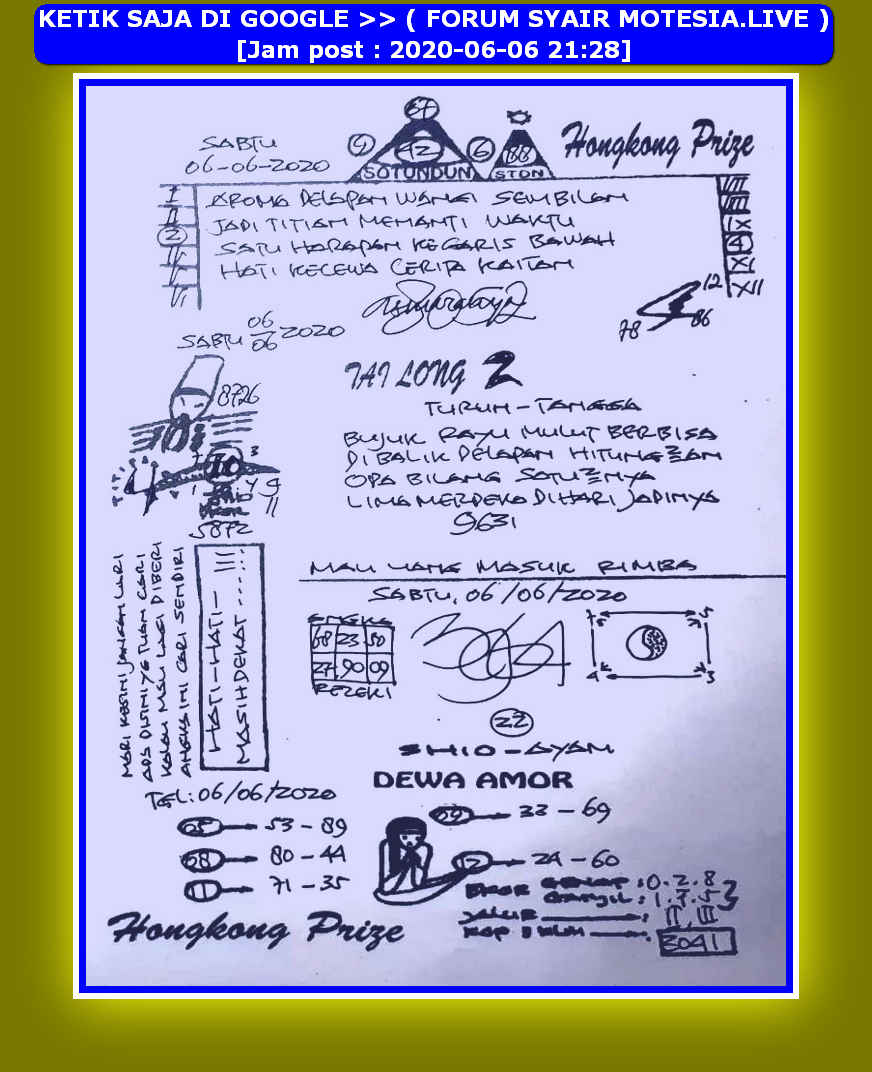 KETIK SAJA DI GOOGLE >> ( FORUM SYAIR MOTESIA.LIVE )
[Jam post : 2020-06-06 21:28]
67
SABTU
06-06-2020
9
42
6
88
Hongkong Prize
SOTUNDUN
STDN
I
II
2
IV
V
VI
AROMA DELAPAN WANGI SEMBILAN
JADI TITIAN MENANTI WAKTU
SATU HARAPAN KEGARIS BAWAH
HATI KECEWA CERITA KAITAN
VII
VIII
IX
4
XI
XII
12
78
86
SABTU 06/06 2020
8726
TAI LONG 2
TURUN-TANGGA
BUJUK RAYU MULUT BERBISA
DI BALIK DELAPAN HITUNGAN
OPA BILANG SATU2NYA
LIMA MERDEKA DIHARI JADINYA
9631
10
5872
MARI KESINI JANGAN LARI
ADA DISINI YG TUAN CARI
KALAU MAU LAGI DIBERI
ANGKA INI CARI SENDIRI
HATI-HATI-!!!
MASIH DEKAT
MAU YANG MASUK RIMBA
SABTU, 06/06/2020
ANGKA
68 23 50
27 90 09
REZEKI
364
7
5
4
3
22
SHIO-AYAM
DEWA AMOR
TGL: 06/06/2020
05 53-89
08 80-44
11 71-35
09 33-69
12 24-60
EKOR GENAP : 0.2.8
GANJIL : 1.7.5
JALUR : II, III
KOP : 3041
Hongkong Prize